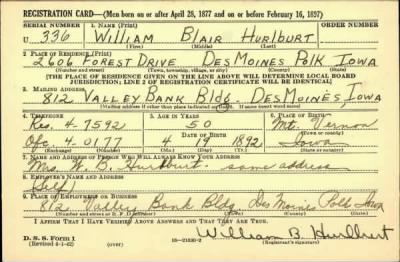 REGISTRATION CARD—(Men born on or after April 28, 1877 and on or before February 16, 1897)
SERIAL NUMBER 1. NAME (Print) ORDER NUMBER
U 336 William Blair Hurlburt
(First) (Middle) (Last)
2. PLACE OF RESIDENCE (Print)
2606 Forest Drive Des Moines Polk Iowa
(Number and street) (Town, township, village, or city) (County) (State)
[THE PLACE OF RESIDENCE GIVEN ON THE LINE ABOVE WILL DETERMINE LOCAL BOARD
JURISDICTION; LINE 2 OF REGISTRATION CERTIFICATE WILL BE IDENTICAL]
3. MAILING ADDRESS
812 Valley Bank Bldg. Des Moines, Iowa
[Mailing address if other than place indicated on line 2. If same insert word same]
4. TELEPHONE 5. AGE IN YEARS 6. PLACE OF BIRTH
Res. 4-7592 50 Mt. Vernon
DATE OF BIRTH (Town or county)
Ofc. 4-0177 4 19 1892 Iowa
(Exchange) (Number) (Mo.) (Day) (Yr.) (State or country)
7. NAME AND ADDRESS OF PERSON WHO WILL ALWAYS KNOW YOUR ADDRESS
Mrs. W. B. Hurlburt - same address
8. EMPLOYER'S NAME AND ADDRESS
Self
9. PLACE OF EMPLOYMENT OR BUSINESS
812 Valley Bank Bldg. Des Moines Polk Iowa
(Number and street or R. F. D. number) (Town) (County) (State)
I AFFIRM THAT I HAVE VERIFIED ABOVE ANSWERS AND THAT THEY ARE TRUE.
William B. Hurlburt
D. S. S. Form 1
(Revised 4-1-42) (over) 16—21630-2 (Registrant's signature)